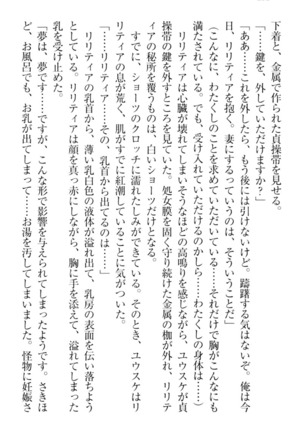 下着と、金属で作られた貞操帯を見せる。
「……鍵を、外していただけますか？」
「ああ……これを外したら、もう後には引けないけど。躊躇する気はないぞ。俺は今
日、リリティアを抱く、妻にするっていうのは、そういうことだ」
（こんなに、わたくしのことを求めていただいている……それだけで胸がこんなにも
満たされている……でも、受け入れていただけるのかしら……わたくしの身体は……）
リリティアは心臓が壊れてしまいそうなほどの高鳴りを感じながら、ユウスケが貞
操帯の鍵を外すところを見ていた。処女膜を固く守り続けた金属の枷が外れ、リリテ
ィアの秘所を覆うものは、白いショーツだけとなる。
すでに、ショーツのクロッチに濡れたしみができている。そのとき、ユウスケはリ
リティアの息が荒く、肌がすでに紅潮していることに気がついた。
「……リリティア……その、乳首から出てるのは……」
リリティアの乳首から、薄い乳白色の液体が溢れ出て、乳房の表面を伝い落ちよう
としている。リリティアは顔を真っ赤にしながら、胸に手を添えて、溢れてしまった
乳を受け止めた。
「夢は、夢です……ですが、こんな形で影響を与えられてしまったようです。さきほ
ど、お風呂でも、お乳が出てしまって……お湯を汚してしまいました。怪物に妊娠さ